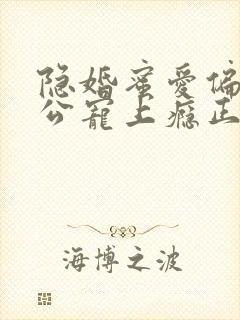 隐婚蜜爱偏
公宠上瘾正
海博之波